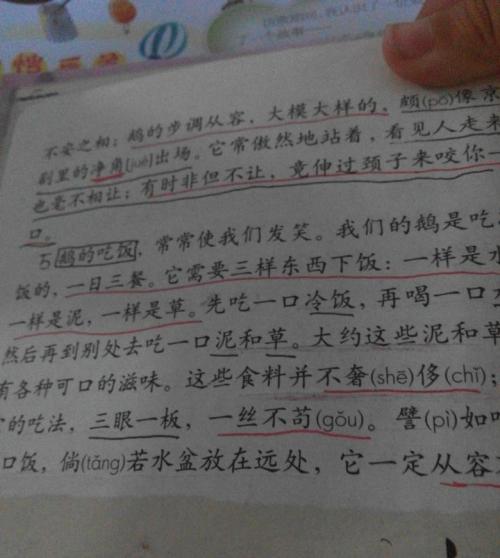 不安之相；鹅的步调从容，大模大样的，颇(pō)像京
剧里的净角(jué)出场。它常傲然地站着，看见人走来
也毫不相让；有时非但不让，竟伸过颈子来咬你一
口。
5 鹅的吃饭，常常使我们发笑。我们的鹅是吃
饭的，一日三餐。它需要三样东西下饭：一样是水
一样是泥，一样是草。先吃一口冷饭，再喝一口
然后再到别处去吃一口泥和草。大约这些泥和草
有各种可口的滋味。这些食料并不奢(shē)侈(chǐ)；
的吃法，三眼一板，一丝不苟(gǒu)。譬(pì)如吃
口饭，倘(tǎng)若水盆放在远处，它一定从容